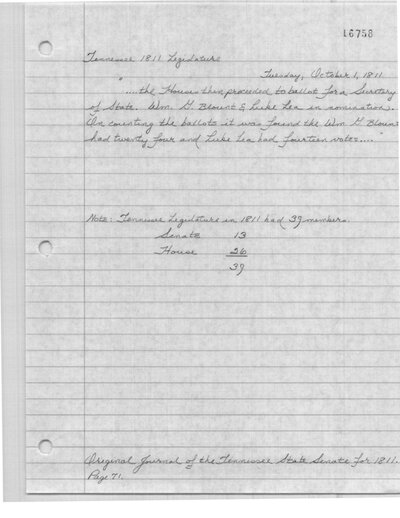 16758
Tennessee 1811 Legislature
Tuesday, October 1, 1811
"....the Houses then proceeded to ballot for a Secretary
of State. Wm G Blount & Luke Lea in nomination.
On counting the ballots it was found the Wm G Blount
had twenty four and Luke Lea had fourteen votes...."
Note: Tennessee Legislature in 1811 had 39 members.
Senate 13
House 26
39
Original Journal of the Tennessee State Senate for 1811.
Page 71.